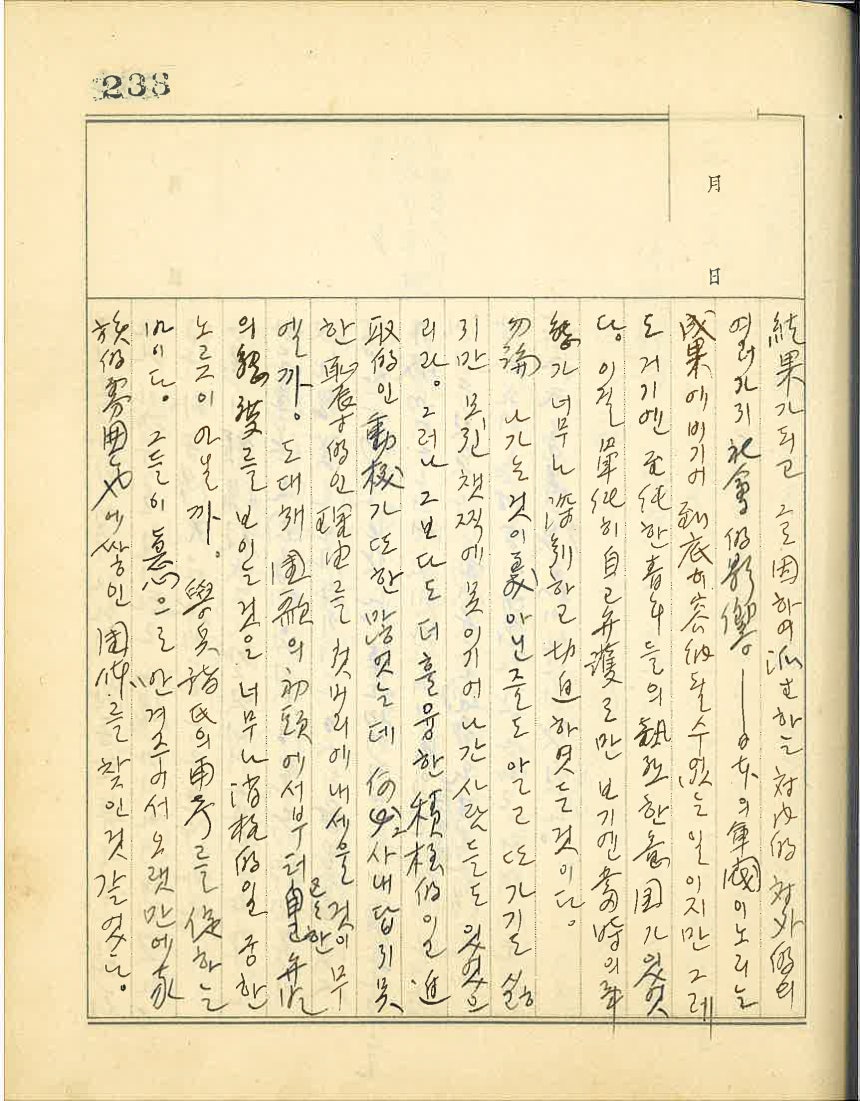 238
月
日
結果가되고 그로因하여 派生하는 対内的 対外的의
여러가지 社會的影響 — 日本의軍國이노리는
成果에비기여 到底히容納될수없는일이지만 그레
도 거기엔 至純한靑年들의 熱烈한意圖가있엇
당 이걸 單純히 自己弁護로만 보기엔 當時의事
態가너무나 深刻하고 切迫하엿든것이다。
勿論 나가는것이義아닌줄도 알고 또가기도 싫
지만 모진챗찍에 못이기어나간사람들도 있엇으
리라。그러나 그보다도 더훌융한積極的인 進
取的인動機가또한많엇는데 何必 사내답지못
한 恥辱的인理由를 것머리에내세울것이무
엘까。도대채 團歌의初頭에서부터 또는한 弁明
의態度를 보이는것은 너무나消極的인 종한
노르이아닐까。學兵諸氏의再考를 促하는
바이다。그들이 意으로 안겨주어서 오랫만에家
族的雰囲気에쌓인 團体를 찾인것 갈엇다。